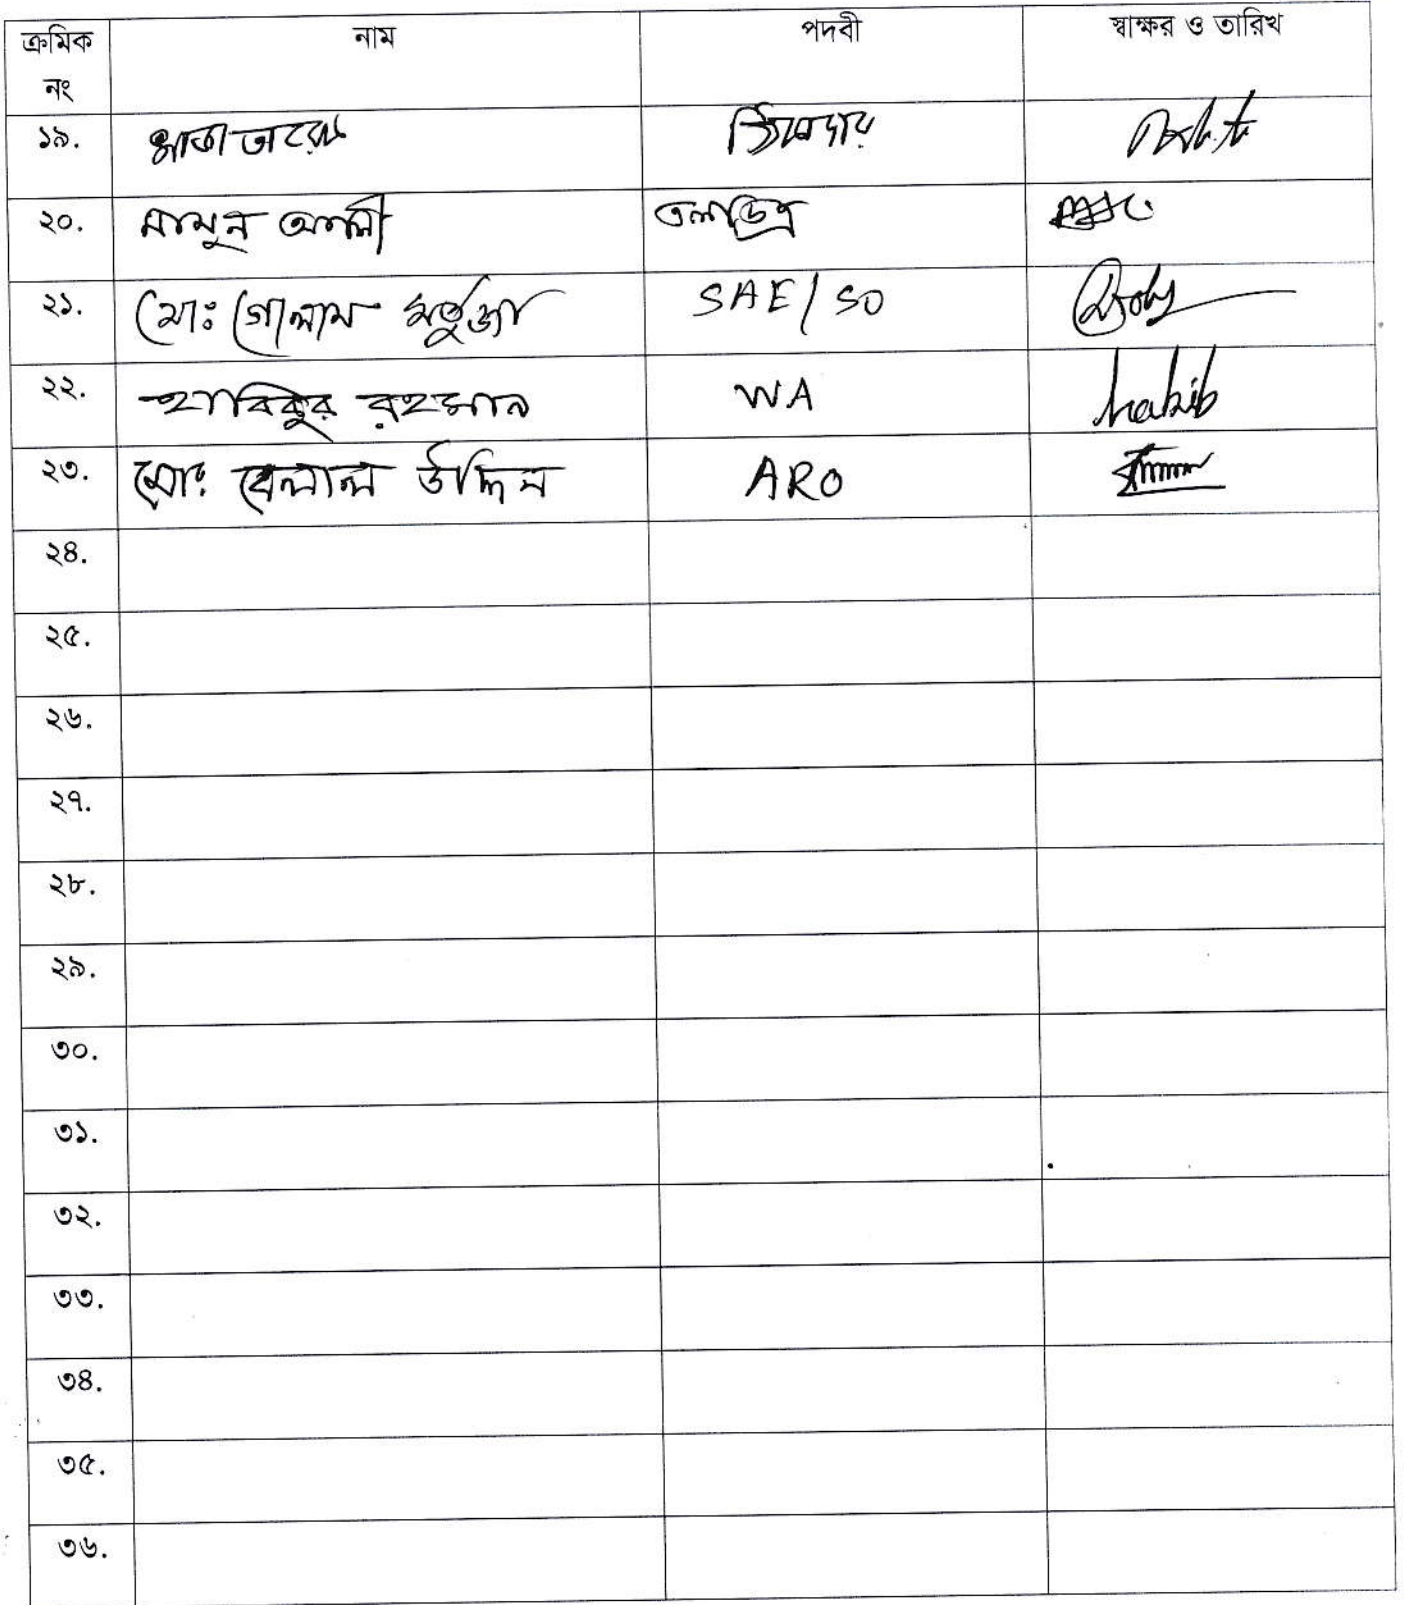 ক্রমিক নং নাম পদবী স্বাক্ষর ও তারিখ
১৯. ঠিকাদার
২০. মামুন আলী
২১. মোঃ গোলাম মর্তুজা SAE/SO
২২. হাবিবুর রহমান WA habib
২৩. মোঃ বেলাল উদ্দিন ARO
২৪.
২৫.
২৬.
২৭.
২৮.
২৯.
৩০.
৩১.
৩২.
৩৩.
৩৪.
৩৫.
৩৬.